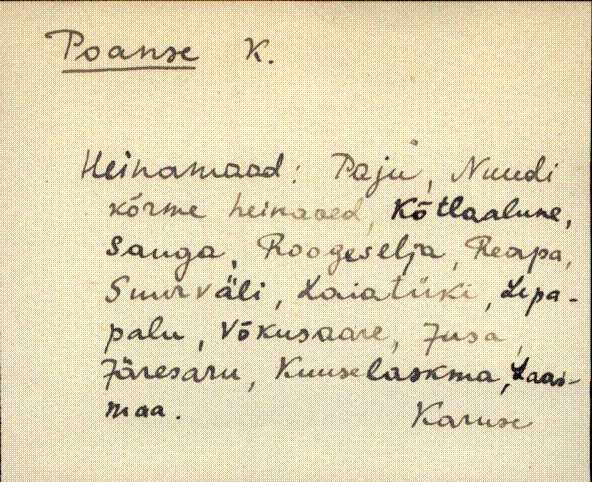 Poanse K.
Heinamaad: Paju, Nuudi
kõrme heinaaed, Kõtlaalune,
Sauga, Roogeselja, Reapa,
Suurväli, Laiatüki, Lepa-
palu, Võkusaare, Jusa,
Järesaru, Kuuselaskma, Laas-
maa.
Karuse